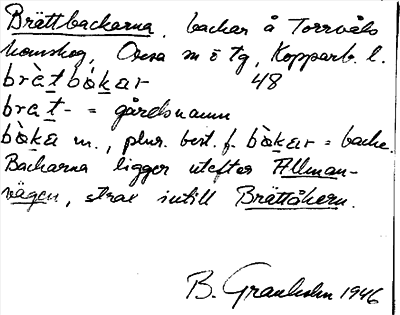 Brättbackarna, backar å Torrvåls
hemskog, Orsa sn i tg, Kopparb. l.
brät bòkar 48
brät- = gårdsnamn
bòka m., plur. best. f. bòkar = backe.
Backarna ligger utefter Allman-
vägen, strax intill Brättåkern.
B. Granholm 1946